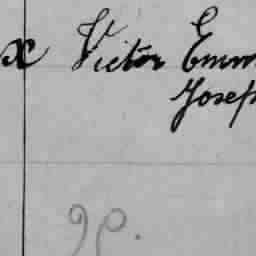 x Victor Emm
Joseph
98.